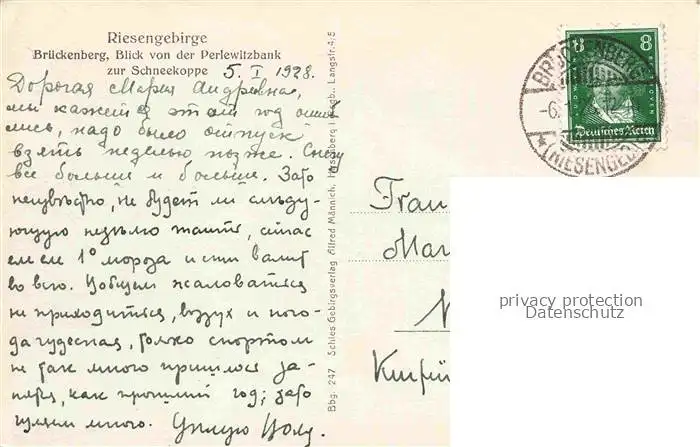 Riesengebirge
Brückenberg, Blick von der Perlewitzbank
zur Schneekoppe
5. I 1928.
Дорогая Мария Андревна,
мы кажется этот год ошиб
лись, надо было отпуск
взять неделью позже. Снегу
все больше и больше. Зато
неизвѣстно, не будет ли слѣду-
ющую недѣлю таять, сейчас
1° мороза и валит
во всю. Вобщем жаловаться
не приходиться, воздух и пого-
да чудесная, только спортом
не так много пришлося за-
няться, как прошлый год; зато
гуляем много. Целую
Bbg. 247 Schles Gebirgsverlag Alfred Männich, Hirschberg i. Rsgb., Langstr. 4/5
8 8
Deutsches Reich
BRÜCKENBERG
-6.
(RIESENGEB)
Frau
Mar
Kurfü
privacy protection
Datenschutz